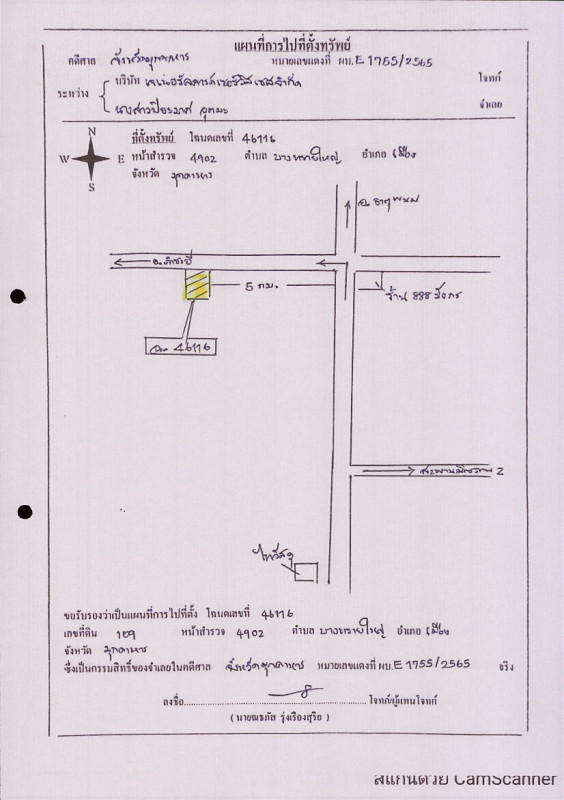 แผนที่การไปที่ตั้งทรัพย์
คดีศาล จังหวัดมุกดาหาร หมายเลขแดงที่ ผบ.E 1755/2565
ระหว่าง
บริษัท เจเนอรัลคาร์ดเซอร์วิสเซสจำกัด โจทก์
นางสาวปิยธงกศ อุตมะ จำเลย
N
W E
S
ที่ตั้งทรัพย์ โฉนดเลขที่ 46116
หน้าสำรวจ 4902 ตำบล บางทรายใหญ่ อำเภอ เมือง
จังหวัด มุกดาหาร
อ.ธาตุพนม
อ.คำชะอี
5 กม.
ร้าน 888 มังกร
46116
สะพานมิตรภาพ 2
ไทวัสดุ
ขอรับรองว่าเป็นแผนที่การไปที่ตั้ง โฉนดเลขที่ 46116
เลขที่ดิน 109 หน้าสำรวจ 4902 ตำบล บางทรายใหญ่ อำเภอ เมือง
จังหวัด มุกดาหาร
ซึ่งเป็นกรรมสิทธิ์ของจำเลยในคดีศาล จังหวัดมุกดาหาร หมายเลขแดงที่ ผบ.E 1755/2565 จริง
ลงชื่อ........................................โจทก์/ผู้แทนโจทก์
(นายณธภัส รุ่งเรืองสุริย)
สแกนด้วย CamScanner